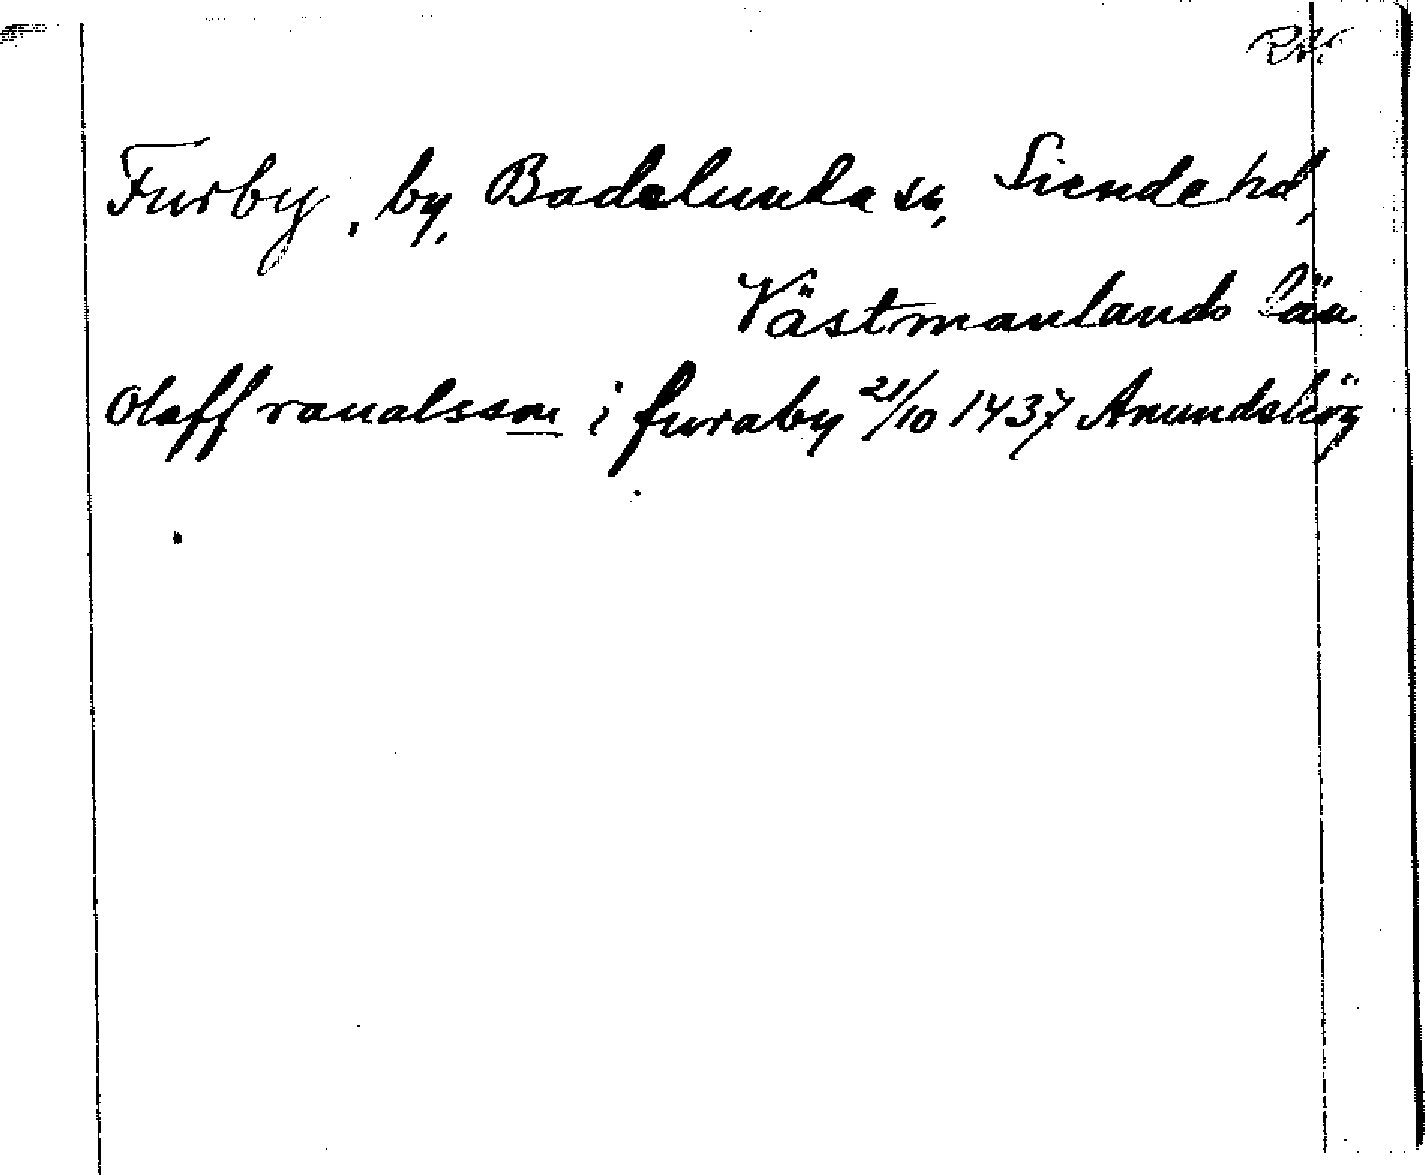 Furby, by, Badelunda sn, Siende hd,
Västmanlands län
Olaff ranalsson i furaby 21/10 1437 Anundshög